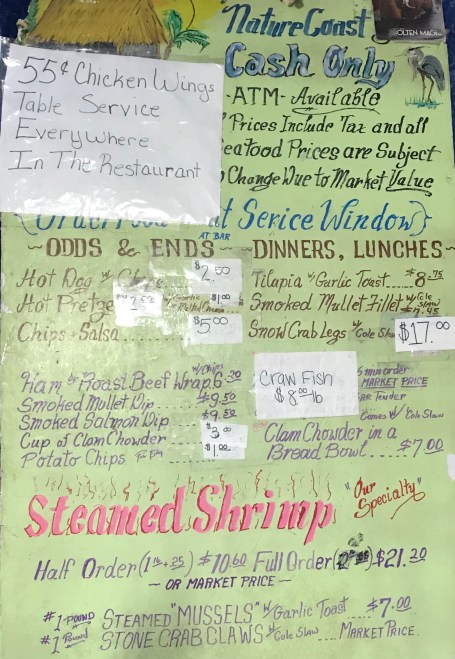 "Nature Coast
OLTEN MAG
Cash Only
-ATM- Available
55¢ Chicken Wings
Table Service
Everywhere
In The Restaurant
Prices Include Tax and all
eafood Prices are Subject
Change Due to Market Value
Order Food at Serice Window
AT BAR
~ODDS & ENDS~
Hot Dog w/ Chips $2.00
Hot Pretze $1.00
Chips & Salsa $5.00
w/ Chips
Ham or Roast Beef Wrap 6.20
Smoked Mullet Dip $9.50
Smoked Salmon Dip $9.50
Cup of Clam Chowder $3.00
Potato Chips $1.00
~DINNERS, LUNCHES~
Tilapia w/ Garlic Toast $8.75
Smoked Mullet Fillet w/ Cole Slaw
Snow Crab Legs w/ Cole Slaw $17.00
Craw Fish
$8.00 lb
5 min order
MARKET PRICE
Comes w/ Cole Slaw
Clam Chowder in a
Bread Bowl $7.00
Steamed Shrimp "Our Specialty"
Half Order (1 lb + 25) $10.60 Full Order $21.20
~ OR MARKET PRICE ~
#1-POUND STEAMED "MUSSELS" w/ Garlic Toast $7.00
#1 Pound STONE CRAB CLAWS w/ Cole Slaw MARKET PRICE